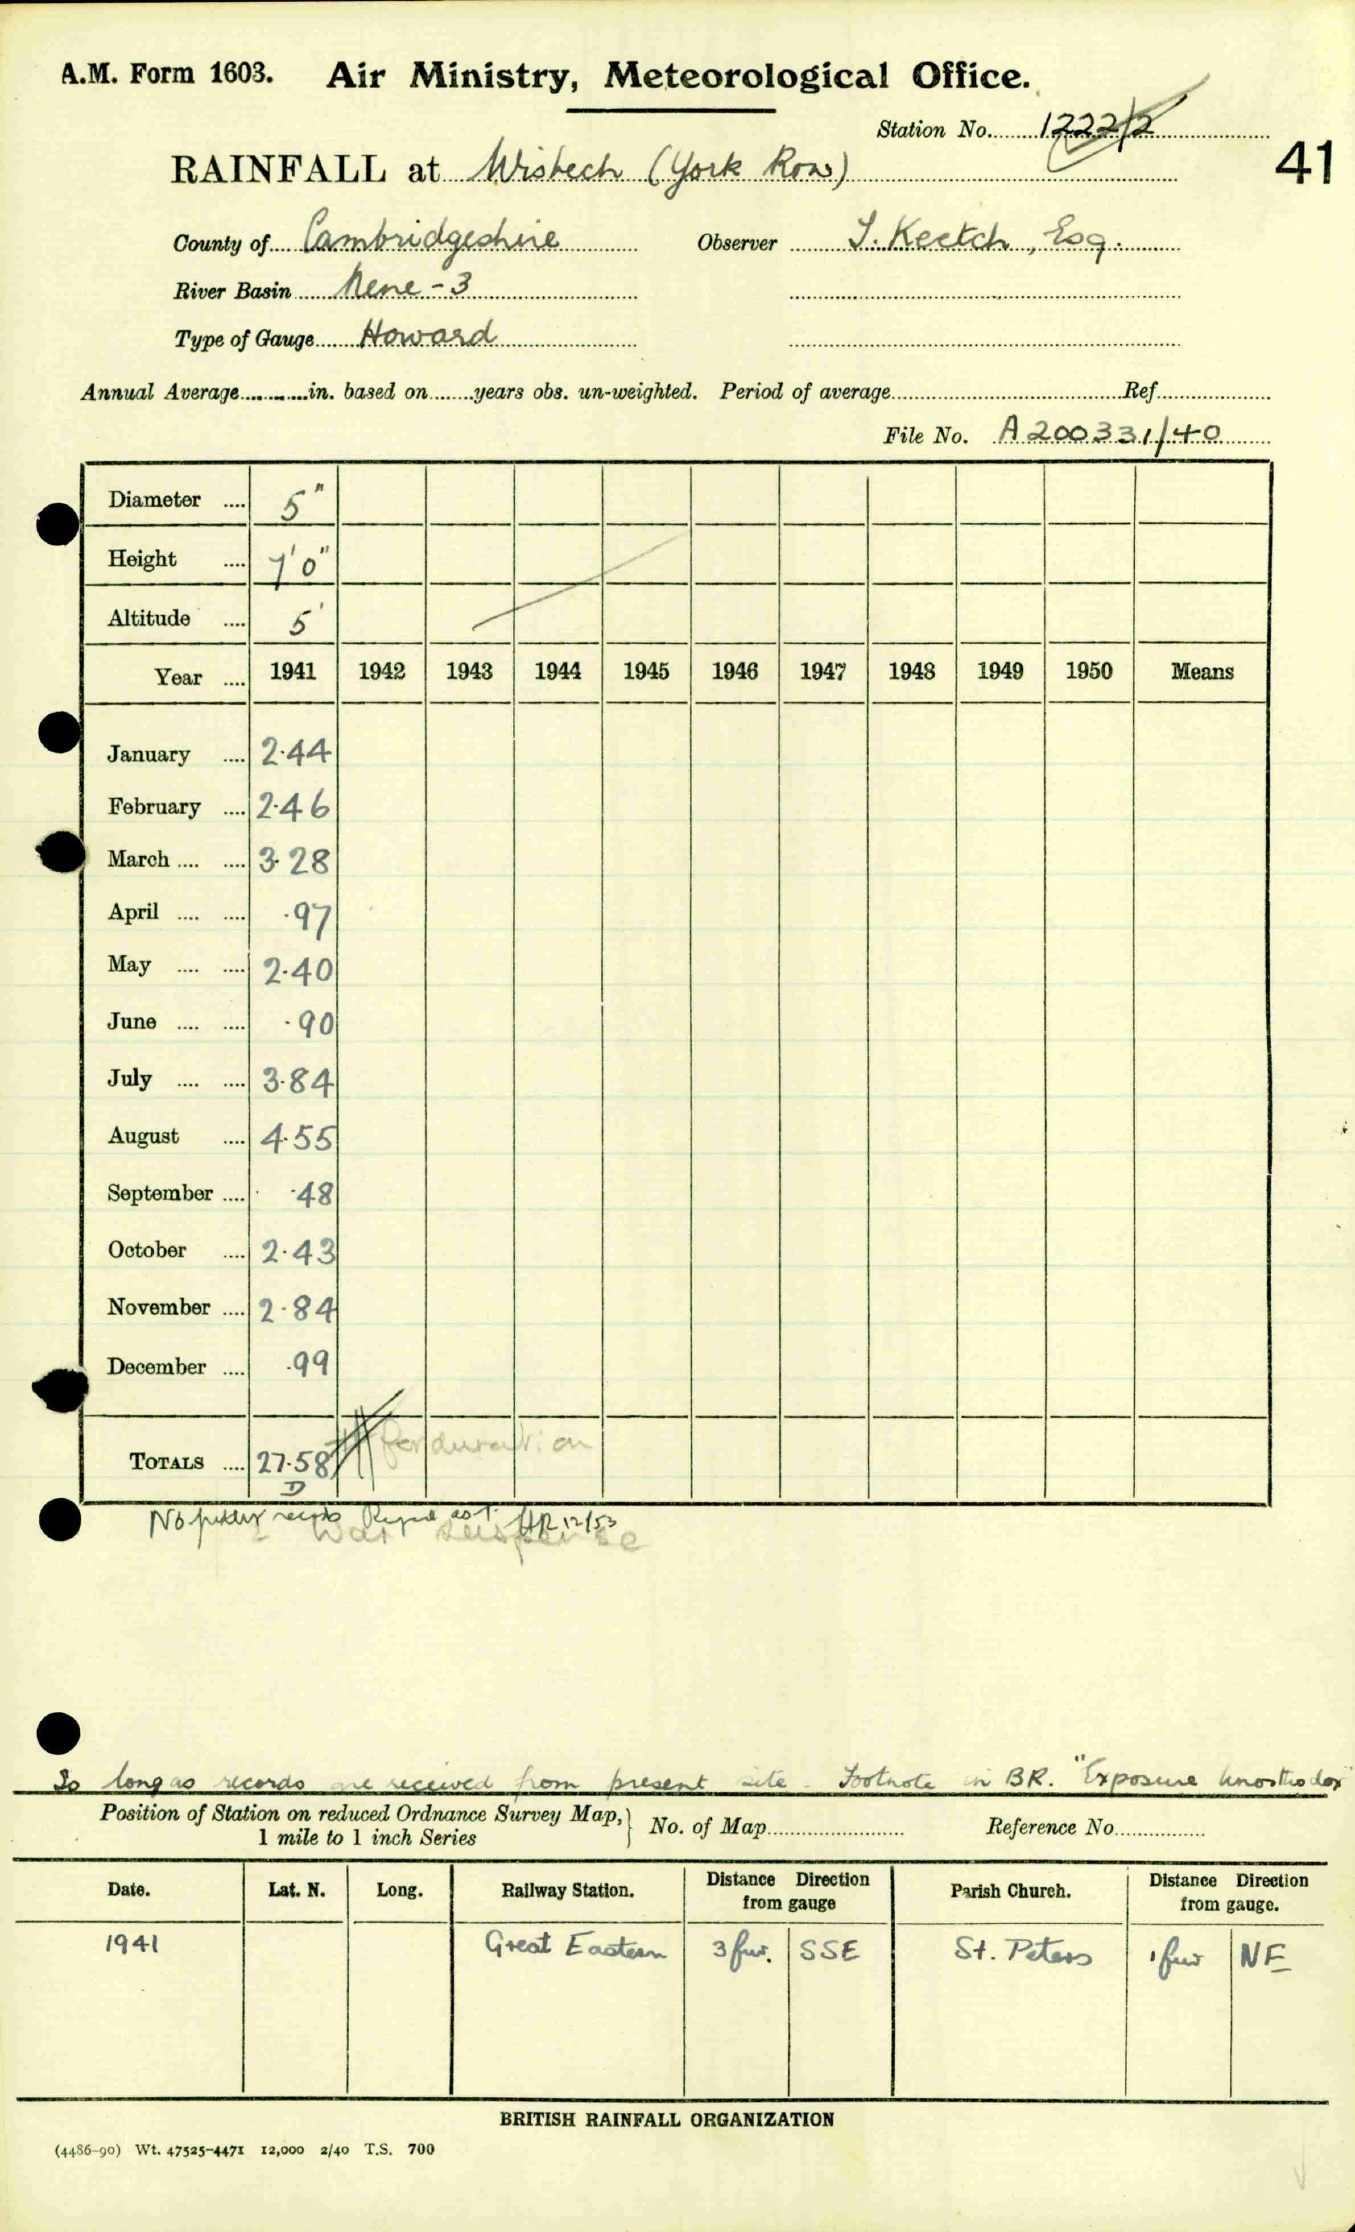 A.M. Form 1603. Air Ministry, Meteorological Office.
Station No. 1222/2
41
RAINFALL at Wisbech (York Row)
County of Cambridgeshire Observer J. Keetch, Esq.
River Basin Nene - 3
Type of Gauge Howard
Annual Average in. based on years obs. un-weighted. Period of average Ref.
File No. A200331/40
Diameter 5"
Height 7'0"
Altitude 5'
Year 1941 1942 1943 1944 1945 1946 1947 1948 1949 1950 Means
January 2.44
February 2.46
March 3.28
April .97
May 2.40
June .90
July 3.84
August 4.55
September .48
October 2.43
November 2.84
December .99
TOTALS 27.58 for duration
D
No further records HR 12/53
War suspense
So long as records are received from present site - Footnote in BR. "Exposure unorthodox"
Position of Station on reduced Ordnance Survey Map, No. of Map Reference No.
1 mile to 1 inch Series
Date. Lat. N. Long. Railway Station. Distance Direction from gauge Parish Church. Distance Direction from gauge.
1941 Great Eastern 3 fur. SSE St. Peters 1 fur NE
BRITISH RAINFALL ORGANIZATION
(4486-90) Wt. 47525-4471 12,000 2/40 T.S. 700